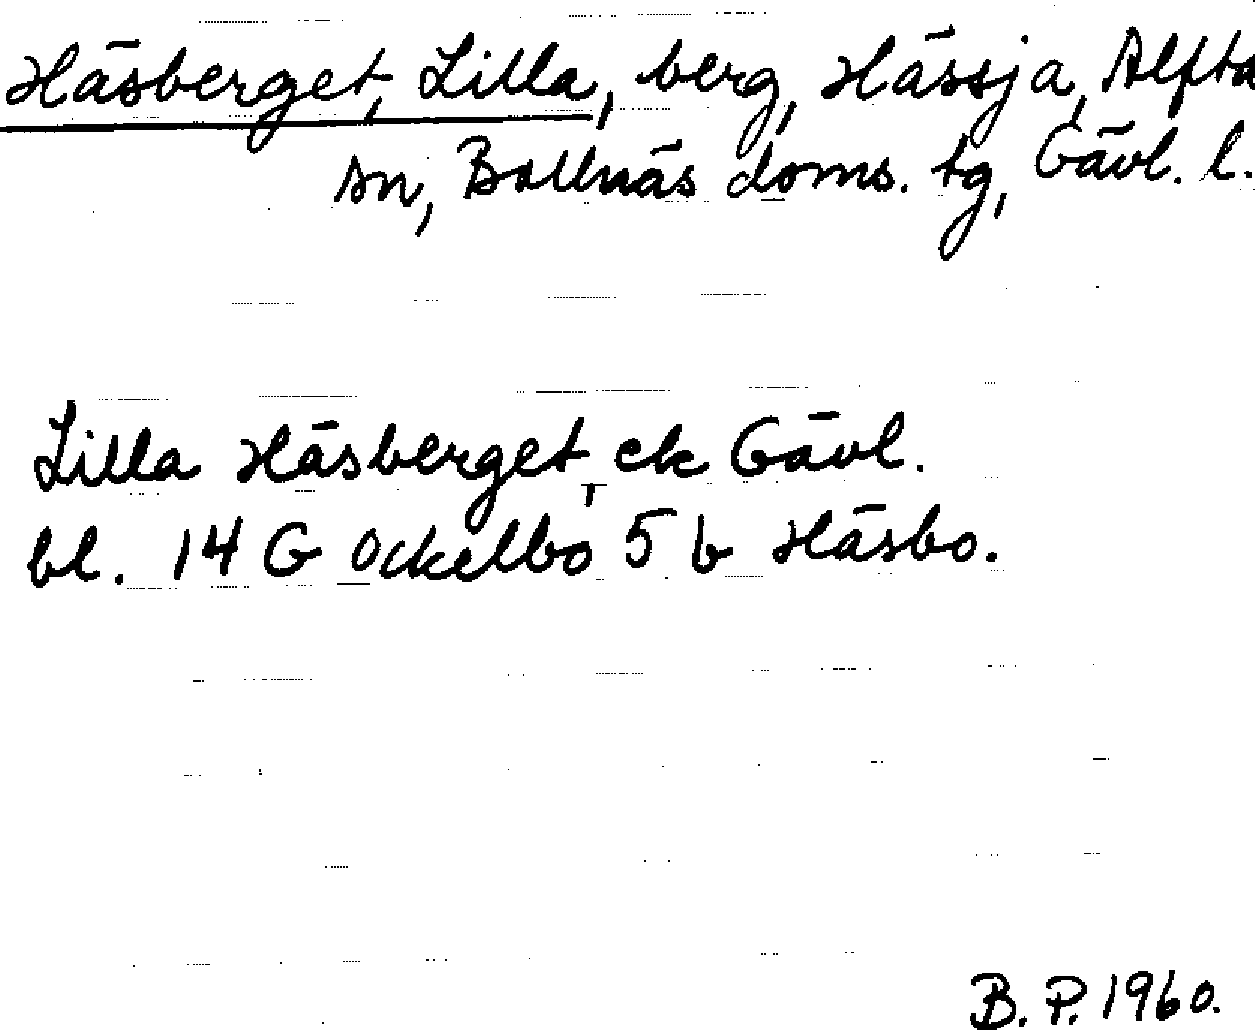 Häsberget, Lilla, berg, Hässja, Alfta
sn, Bollnäs doms. tg, Gävl. l.
Lilla Häsberget, ek Gävl.
bl. 14 G Ockelbo 5 b Häsbo.
B. P. 1960.